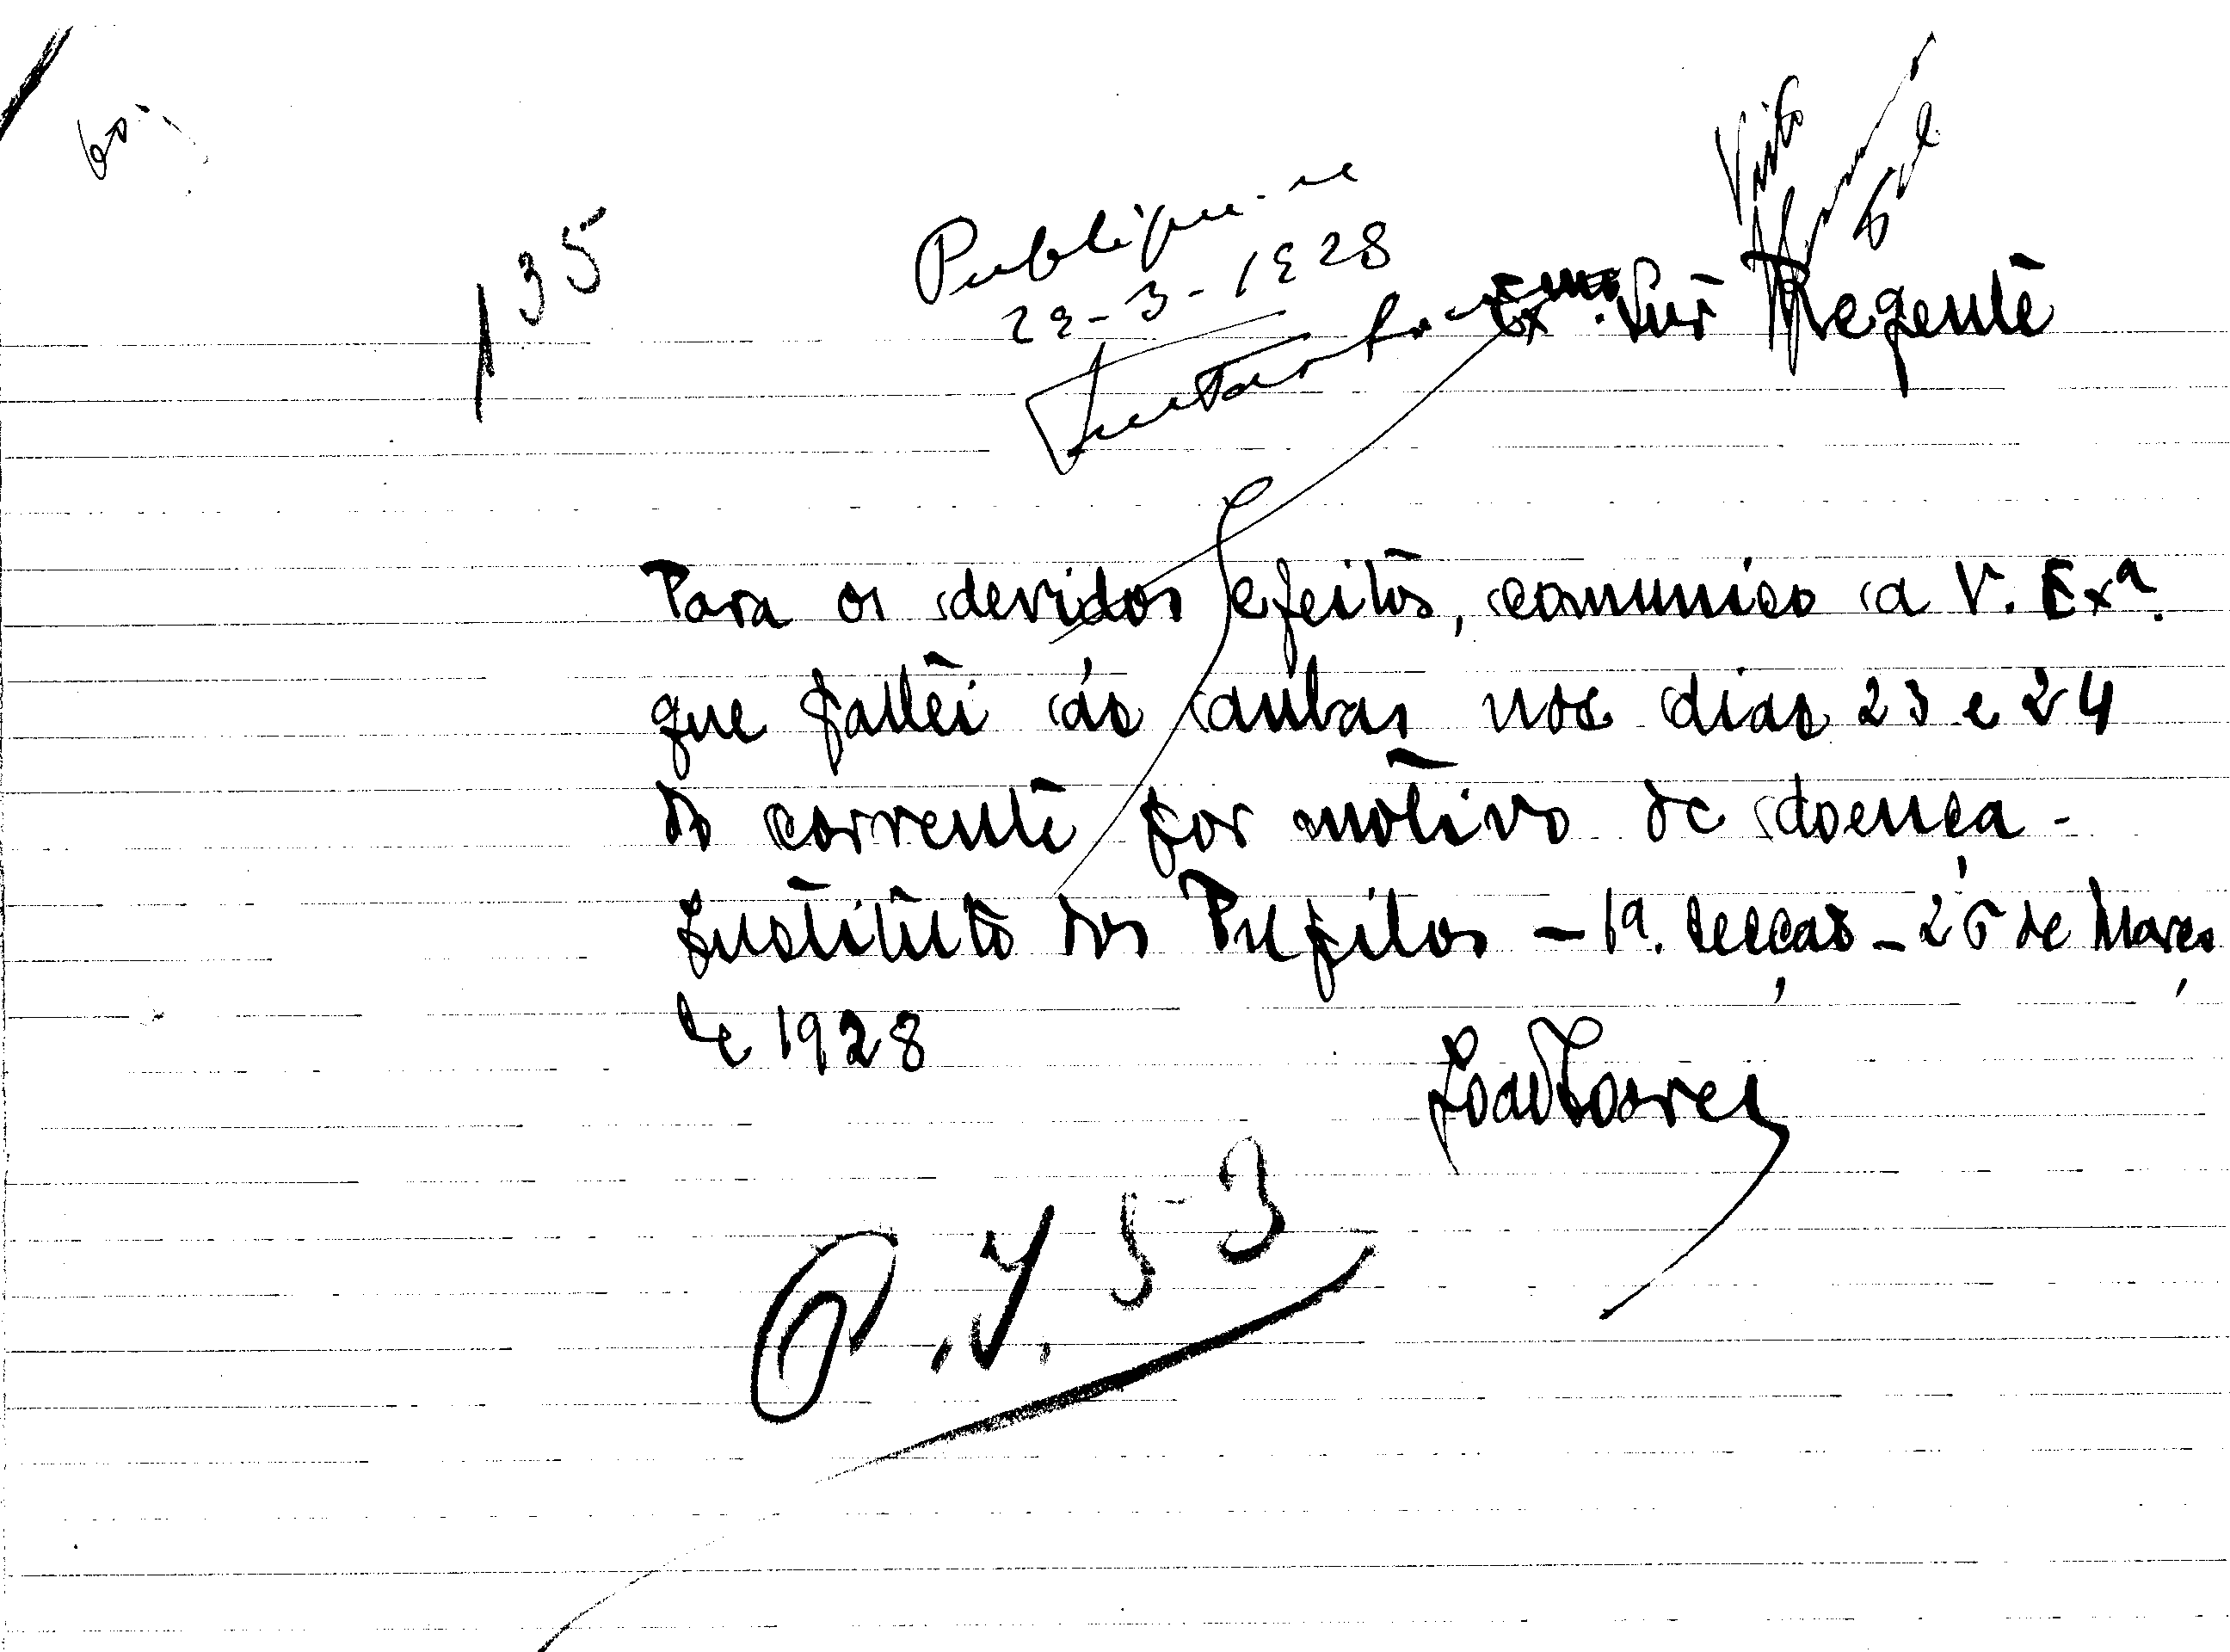 135
Publique-se
29-3-1928
Visto
Exmo. Snr Regente
Para os devidos efeitos, comunico a V. Exª.
que faltei ás aulas nos dias 23 e 24
do corrente por motivo de doença -
Instituto dos Pupilos - 1ª. Secção - 26 de Março
de 1928
João Soares
P. Y. 53